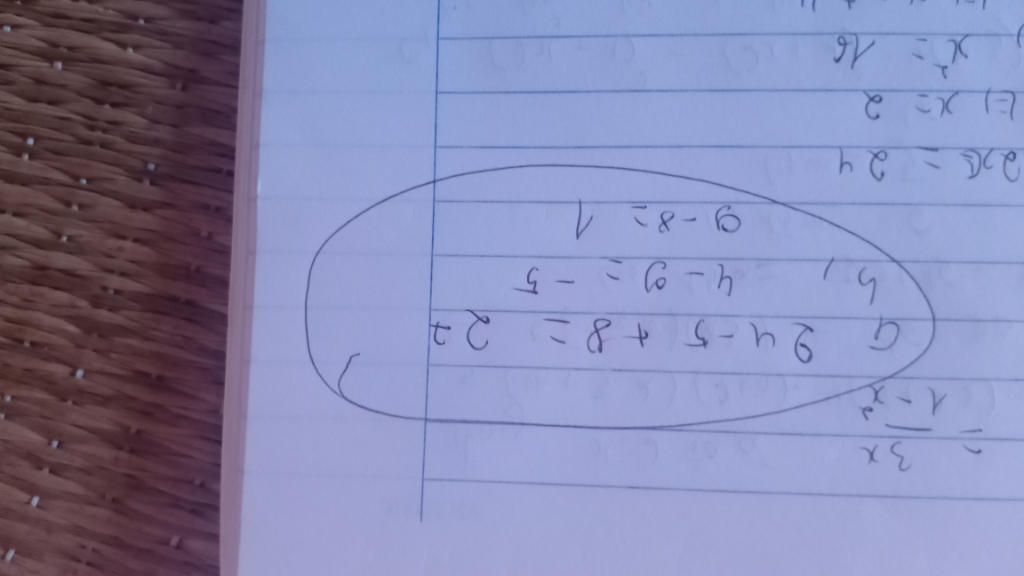 = 3x
1 - x²
a 24 - 5 + 8 = 27
b, 4 - 9 = - 5
9 - 8 = 1
= 24
x = 2
x² = 16